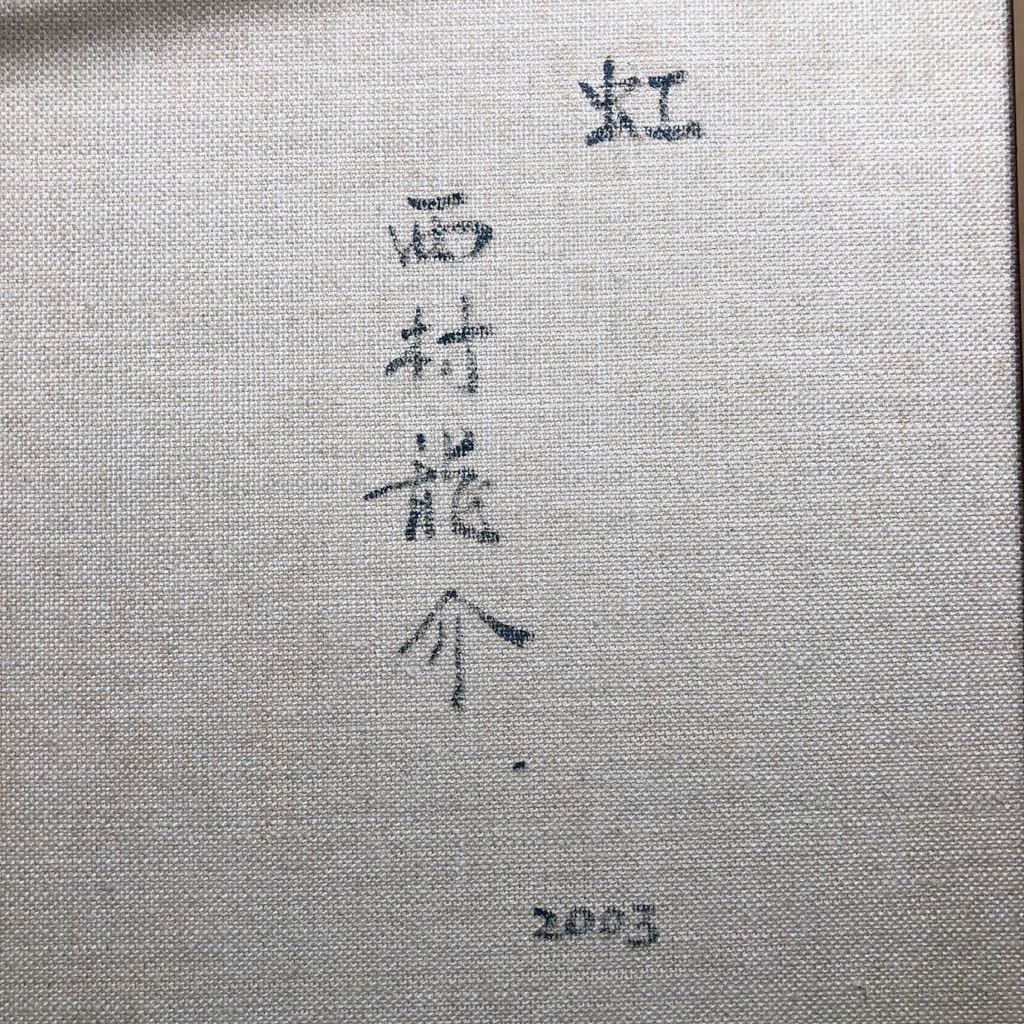 虹
西村龍介
2003